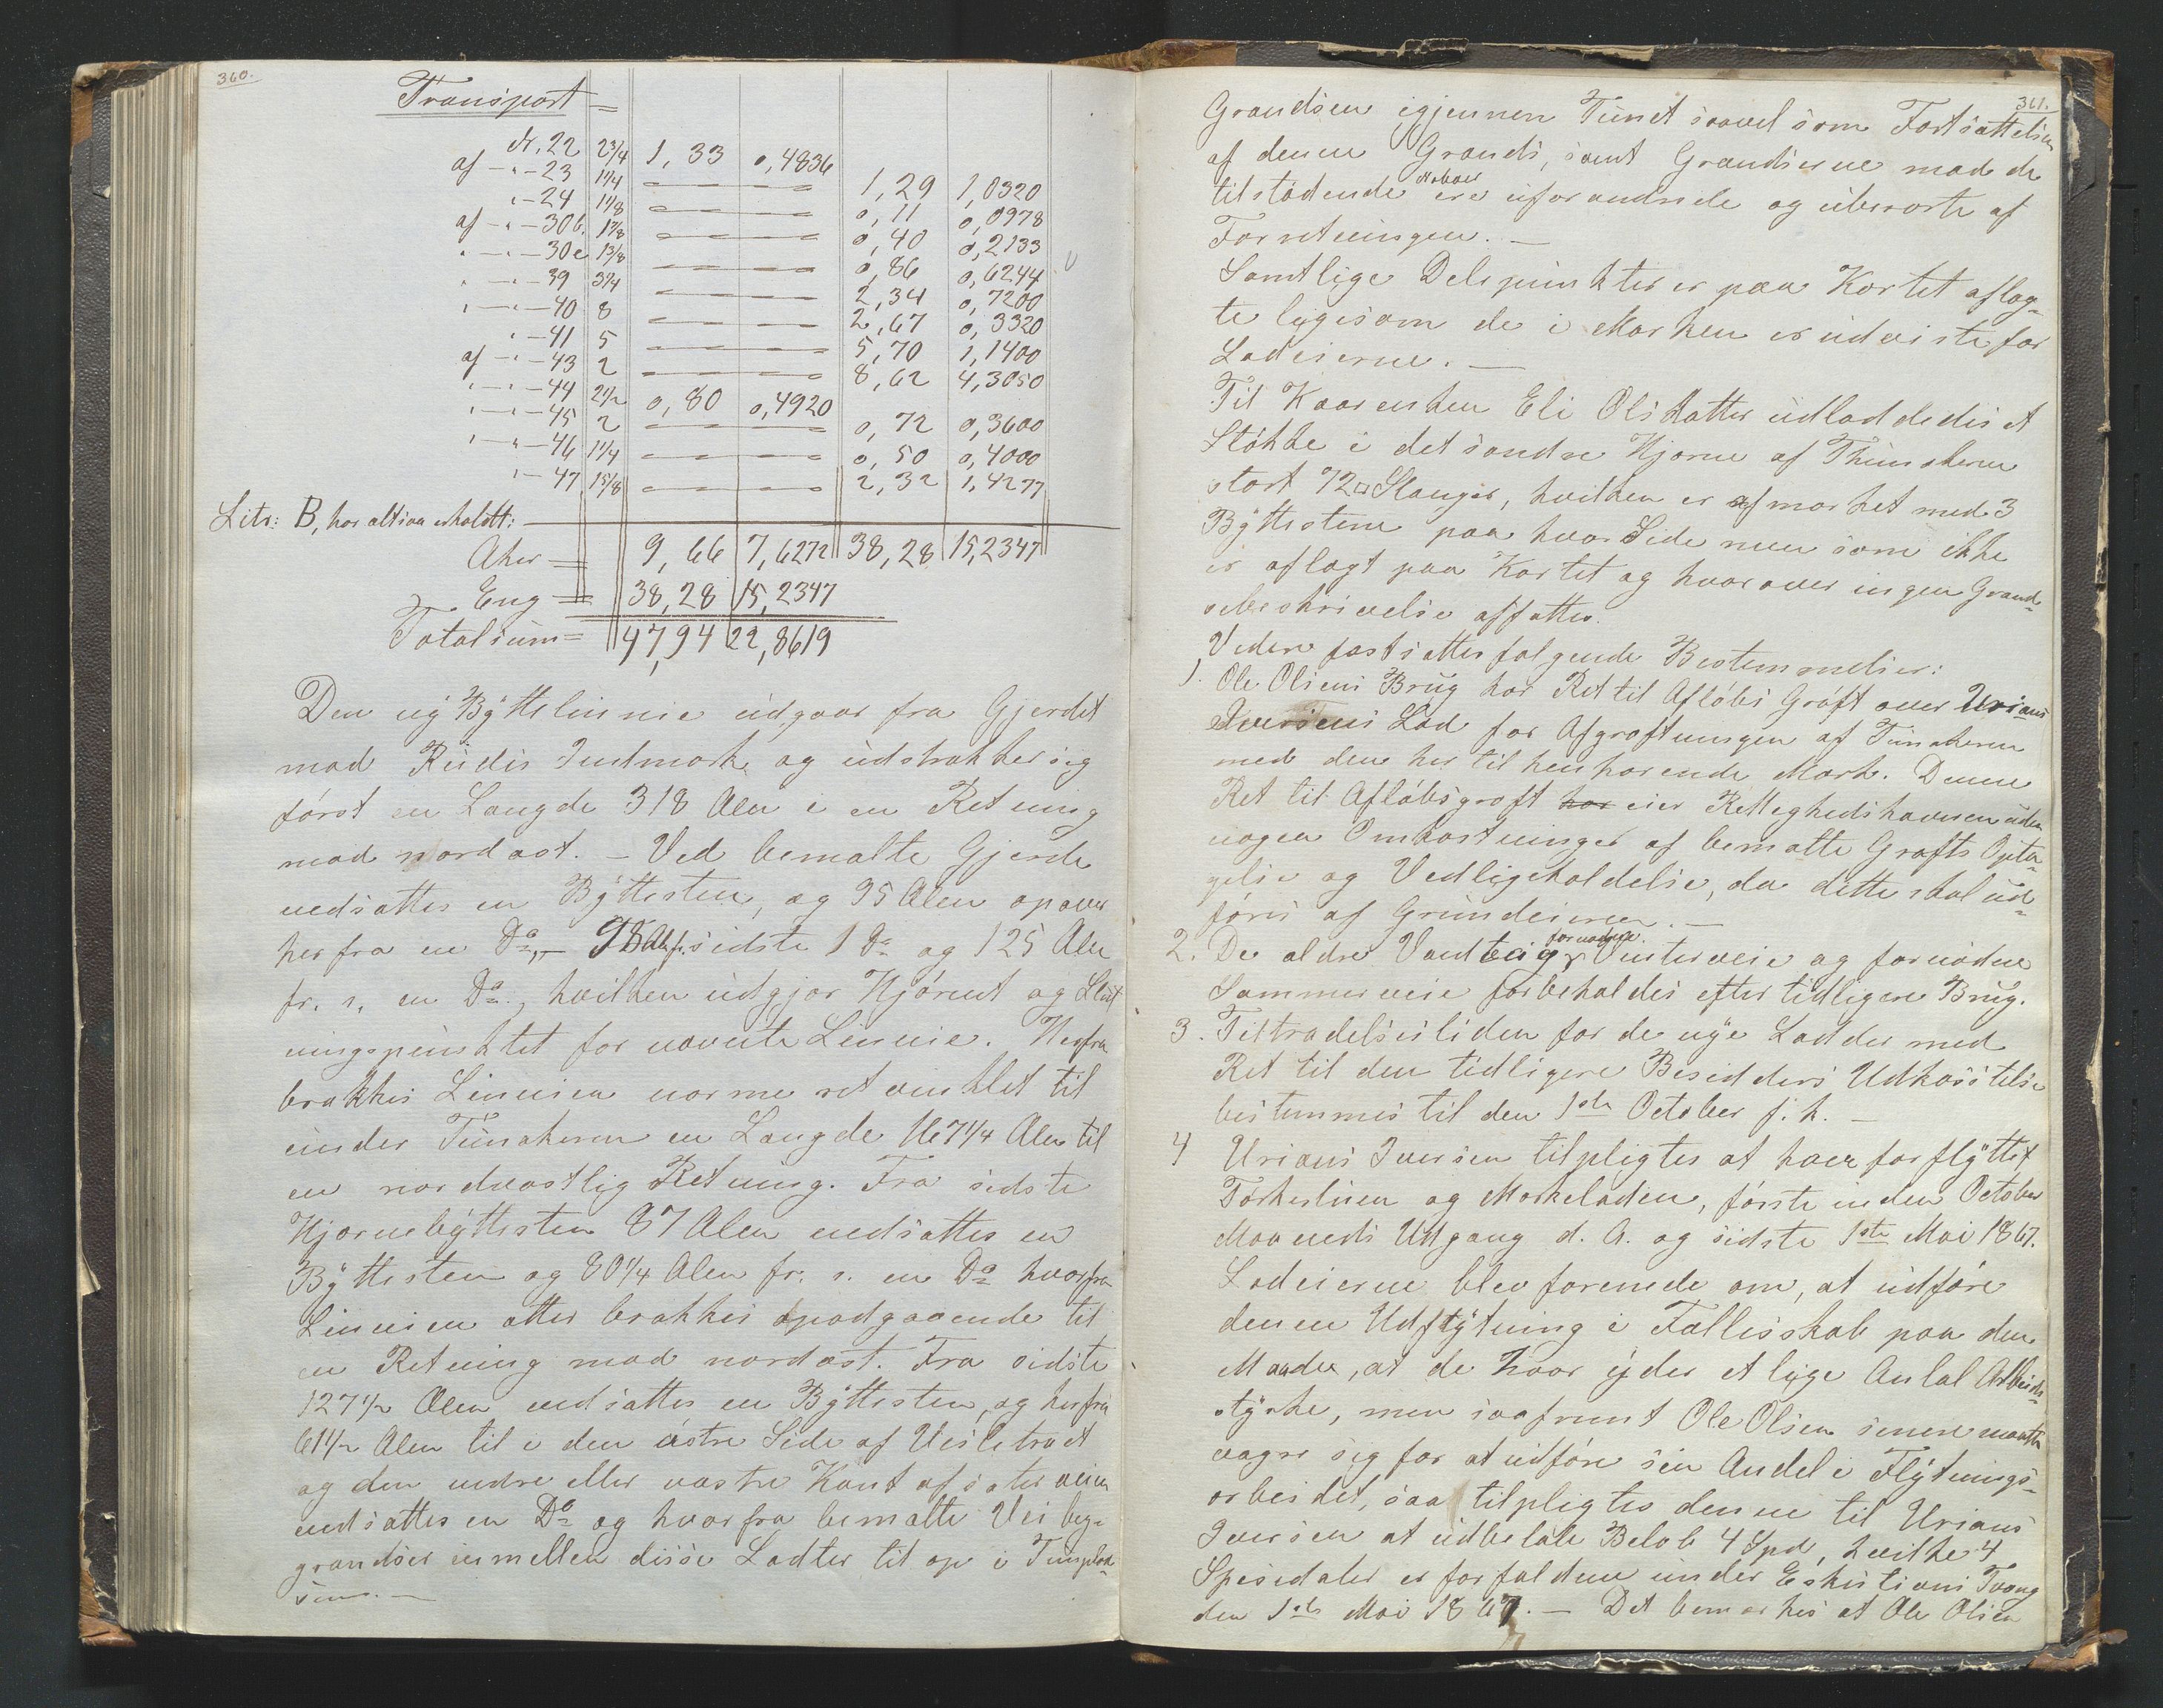 360.
Transport =
N. 22 2 3/4 1,33 0,4836
af - " - 23 1 1/4 — — 1,29 1,0320
" - 24 1 1/8 — — 0,11 0,0978
af - " - 30b. 1 7/8 — — 0,40 0,2133
" - " - 30c 1 3/8 — — 0,86 0,6244
" - " - 39 3 1/4 — — 2,34 0,7200
" - " - 40 8 — — 2,67 0,3320
" - 41 5 — — 5,70 1,1400
af - " - 43 2 — — 8,62 4,3050
" - " - 44 2 1/2 0,80 0,4920
" - " - 45 2 — — 0,72 0,3600
" - " - 46 1 1/4 — — 0,50 0,4000
" - 47 1 5/8 — — 2,32 1,4277
Litr: B, har altsaa erholdt: —
Aker = 9,66 7,6272 38,28 15,2347
Eng = 38,28 15,2347
Totalsum = 47,94 22,8619
Den ny Byttelinnie udgaar fra Gjerdet
mod Ruds Indmark og udstrakker sig
først en Langde 318 Alen i en Retning
mod nordost. – Ved bemalte Gjerde
nedsattes en Byttesten, og 95 Alen opover
herfra en Do, – 98 Al. f. sidste 1 Do og 125 Alen
fr. s. en Do, hvilken udgjør Hjørnet og Slut
ningspunktet for navnte Linnie. Herfra
brakkes Linnien narme retvinklet til
under Tunakeren en Langde 167 1/4 Alen til
en nordvastlig Retning. Fra sidste
Hjornebyttesten 87 Alen nedsattes en
Byttesten og 80 1/4 Alen fr. s. en Do hvorfra
Linnien atter brakkes opadgaaende til
en Retning mod nordost. Fra sidste
127 1/2 Alen nedsattes en Byttesten, og herfra
61 1/2 Alen til i den østre Side af Veiletradt
og den nedre eller vastre Kant af sater veien
nedsattes en Do og hvorfra bemalte Vei beg-
grandser immellen disse Lodter til op i Tunplad-
sen. —
361.
Grandsen igjennen Tunet saavel som Fortsattelsen
af denne Grands, samt Grandserne mod de
tilstødende Naboer ere uforandrede og uberorte af
Forretningen. —
Samtlige Delepunkter er paa Kortet aflag-
te ligesom de i Marken er udviste for
Lodeierne. —
Til Kaarenken Eli Olsdatter udloddedes et
Støkke i det sondre Hjorne af Thunakeren
stort 72 □ Stanger, hvilken er afmarket med 3
Byttestene paa hvor Side men som ikke
er aflagt paa Kortet og hvorover ingen Grand-
sebeskrivelse affattes.
Videre fastsattes folgende Bestemmelser:
1. Ole Olsens Brug har Ret til Afløbs Grøft over Urians
Iversens Lod for Afgroftningen af Tunakeren
med den her til henhorende Mark. Denne
Ret til Afløbsgroft har eier Rettighedshaveren uden
nogen Omkostninger af bematte Grøfts Opta-
gelse og Vedligeholdelse, da dette skal ud-
føres af Grundeieren. —
2. De aldre Vandveie, fornødne Vinterveie og fornødne
Sommerveie forbeholdes efter tidligere Brug.
3. Tiltradelsestiden for de nye Lodder med
Ret til den tidligere Besidders Udkastelse
bestemmes til den 1ste October f. k. —
4 Urians Iversen tilpligtes at have forflyttet
Tørkestuen og Morkeladen, første inden October
Maaneds Udgang d. A. og sidste 1ste Mai 1867.
Lodeierne blev forenede om, at udføre
denne Udflytning i Fallesskab paa den
Maade, at de hvor yder et lige Antal Arbeids-
styrke, men saafremt Ole Olsen senere maatte
vagre sig for at udføre sin Andel i Flytnings-
arbeidet, saa tilpligtes denne til Urians
Iversen at udbetale Beløb 4 Spd, hvilke 4
Spesidaler er forfaldne under Eksekutions Tvang
den 1ste Mai 1867. — Det bemarkes at Ole Olsen